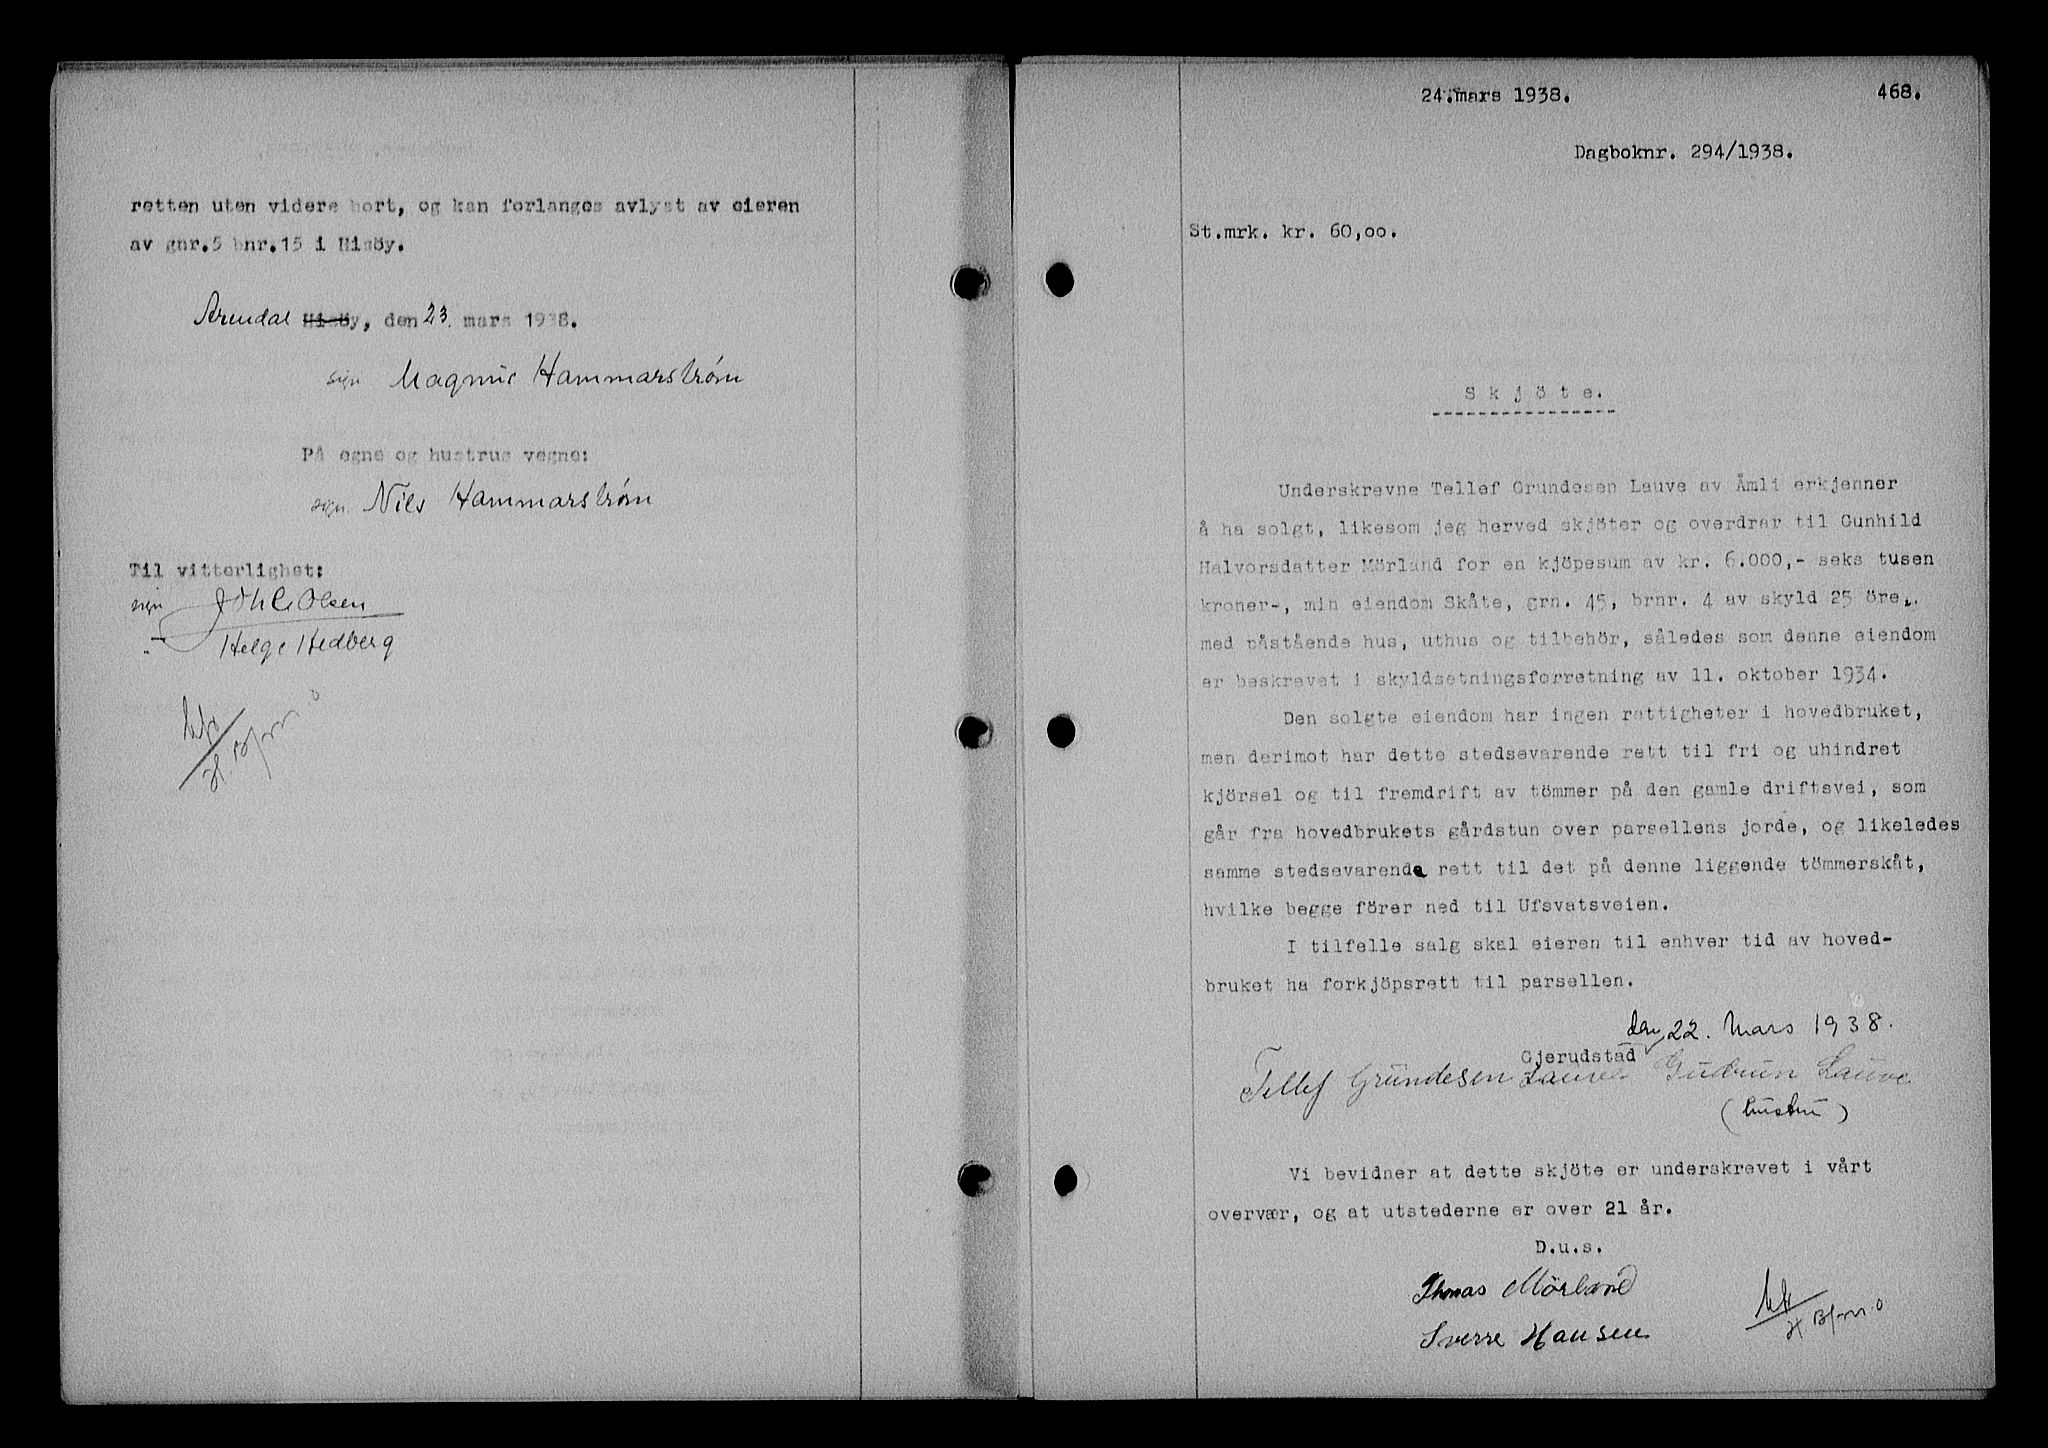 retten uten videre bort, og kan forlanges avlyst av eieren
av gnr.5 bnr.15 i Hisöy.
Arendal Hisöy, den 23. mars 1938.
sign Magnus Hammarstrøm
På egne og hustrus vegne:
sign. Nils Hammarstrøm
Til vitterlighet:
sign Joh. C. Olsen
" Helge Hedberg
24.mars 1938.
468.
Dagboknr. 294/1938.
St.mrk. kr. 60,oo.
S k j ö t e.
Underskrevne Tellef Grundesen Lauve av Åmli erkjenner
å ha solgt, likesom jeg herved skjöter og overdrar til Gunhild
Halvorsdatter Mörland for en kjöpesum av kr. 6.000,- seks tusen
kroner-, min eiendom Skåte, grn. 45, brnr. 4 av skyld 25 öre,.
med påstående hus, uthus og tilbehör, således som denne eiendom
er beskrevet i skyldsetningsforretning av 11. oktober 1934.
Den solgte eiendom har ingen rettigheter i hovedbruket,
men derimot har dette stedsevarende rett til fri og uhindret
kjörsel og til fremdrift av tömmer på den gamle driftsvei, som
går fra hovedbrukets gårdstun over parsellens jorde, og likeledes
samme stedsevarende rett til det på denne liggende tömmerskåt,
hvilke begge förer ned til Ufsvatsveien.
I tilfelle salg skal eieren til enhver tid av hoved-
bruket ha forkjöpsrett til parsellen.
Gjerudstad den 22. Mars 1938.
Tellef Grundesen Lauve Gudrun Lauve
(hustru)
Vi bevidner at dette skjöte er underskrevet i vårt
overvær, og at utstederne er over 21 år.
D.u.s.
Thomas Mörland
Sverre Hansen